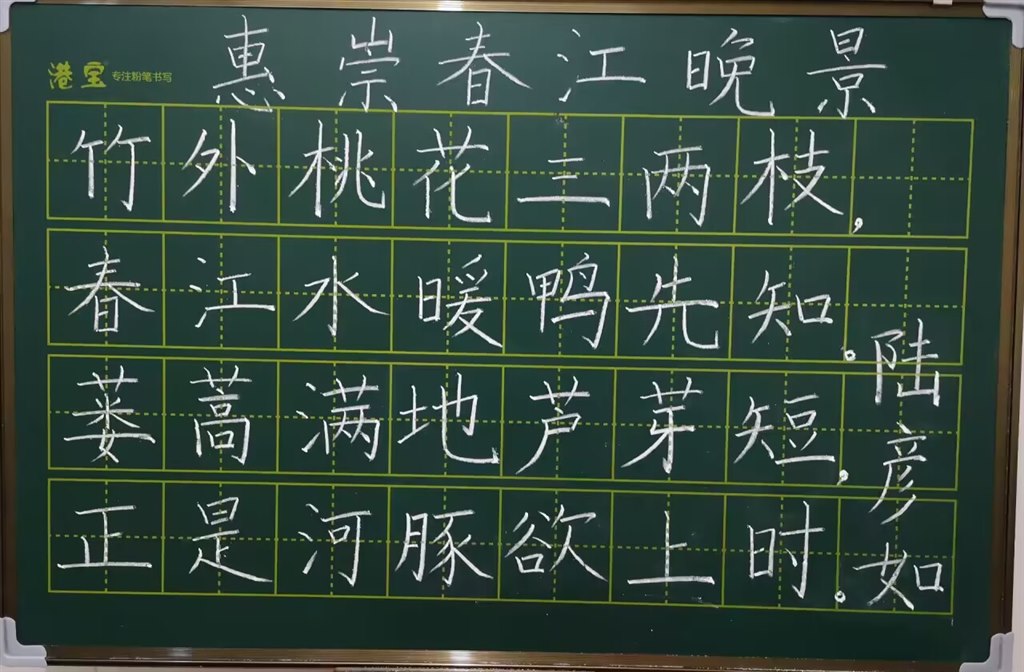 惠崇春江晚景
港宝 专注粉笔书写
竹外桃花三两枝，
春江水暖鸭先知。
蒌蒿满地芦芽短，
正是河豚欲上时。
陆彦如